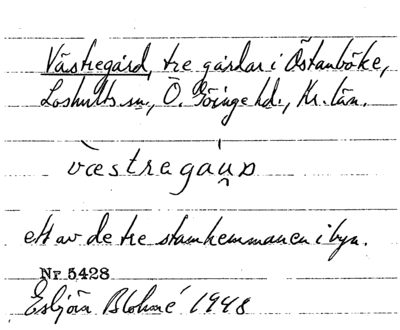 Västregård, tre gårdar i Östanböke,
Loshults sn., Ö. Göinge hd., Kr. län.
væstregáu̯ḍ
ett av de tre stamhemmanen i byn.
Nr 5428
Esbjörn Blohmé 1948